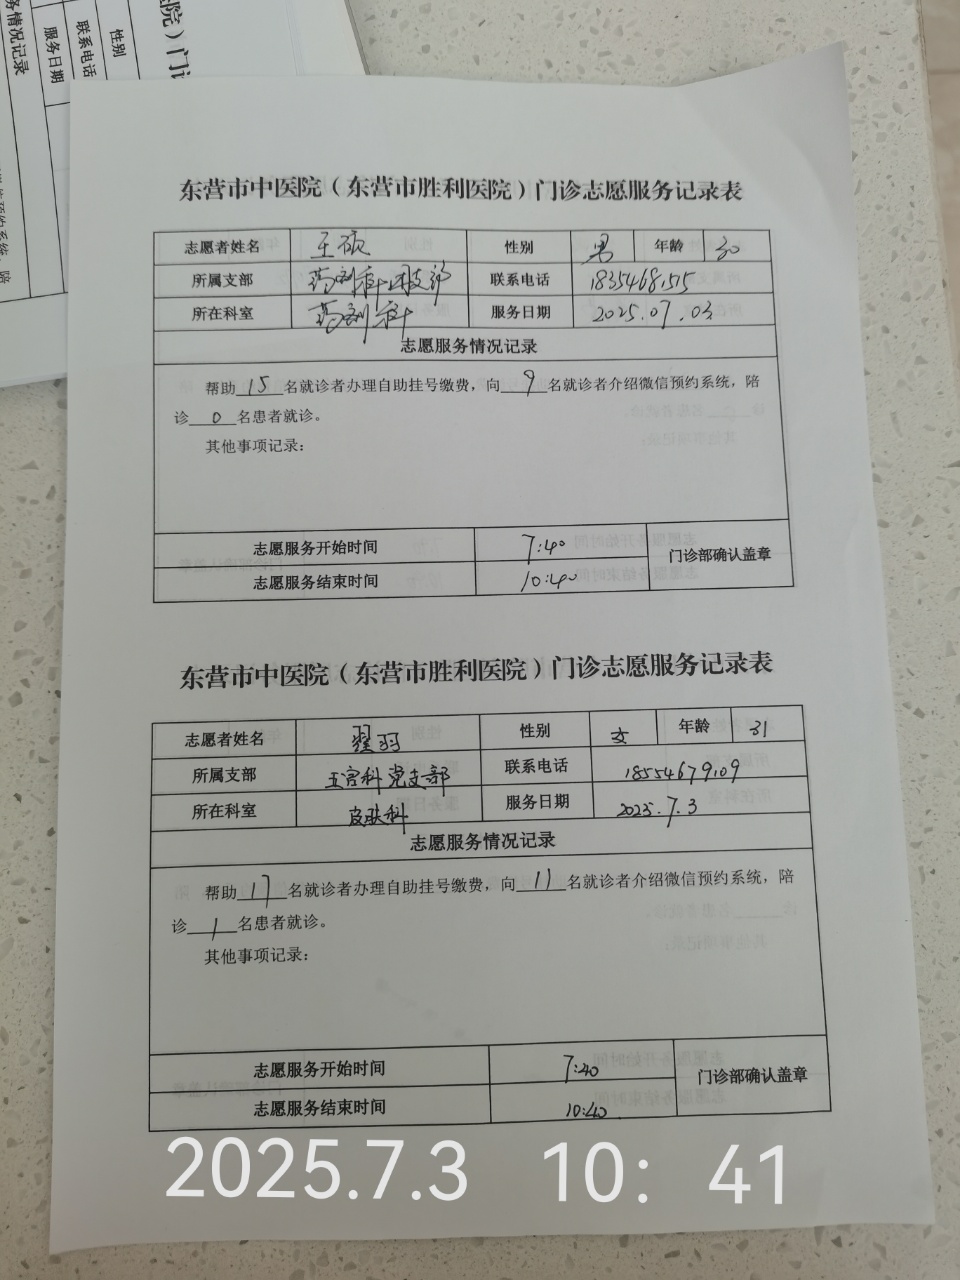 务情况记录
服务日期
联系电话
性别
医院）门诊
东营市中医院（东营市胜利医院）门诊志愿服务记录表
志愿者姓名 王硕 性别 男 年龄 30
所属支部 药剂科 支部 联系电话 18354681515
所在科室 药剂科 服务日期 2025.07.03
志愿服务情况记录
帮助 15 名就诊者办理自助挂号缴费，向 9 名就诊者介绍微信预约系统，陪
诊 0 名患者就诊。
其他事项记录：
志愿服务开始时间 7:40 门诊部确认盖章
志愿服务结束时间 10:40
东营市中医院（东营市胜利医院）门诊志愿服务记录表
志愿者姓名 翟羽 性别 女 年龄 31
所属支部 五官科党支部 联系电话 18554679109
所在科室 皮肤科 服务日期 2025.7.3
志愿服务情况记录
帮助 17 名就诊者办理自助挂号缴费，向 11 名就诊者介绍微信预约系统，陪
诊 1 名患者就诊。
其他事项记录：
志愿服务开始时间 7:40 门诊部确认盖章
志愿服务结束时间 10:40
2025.7.3 10: 41